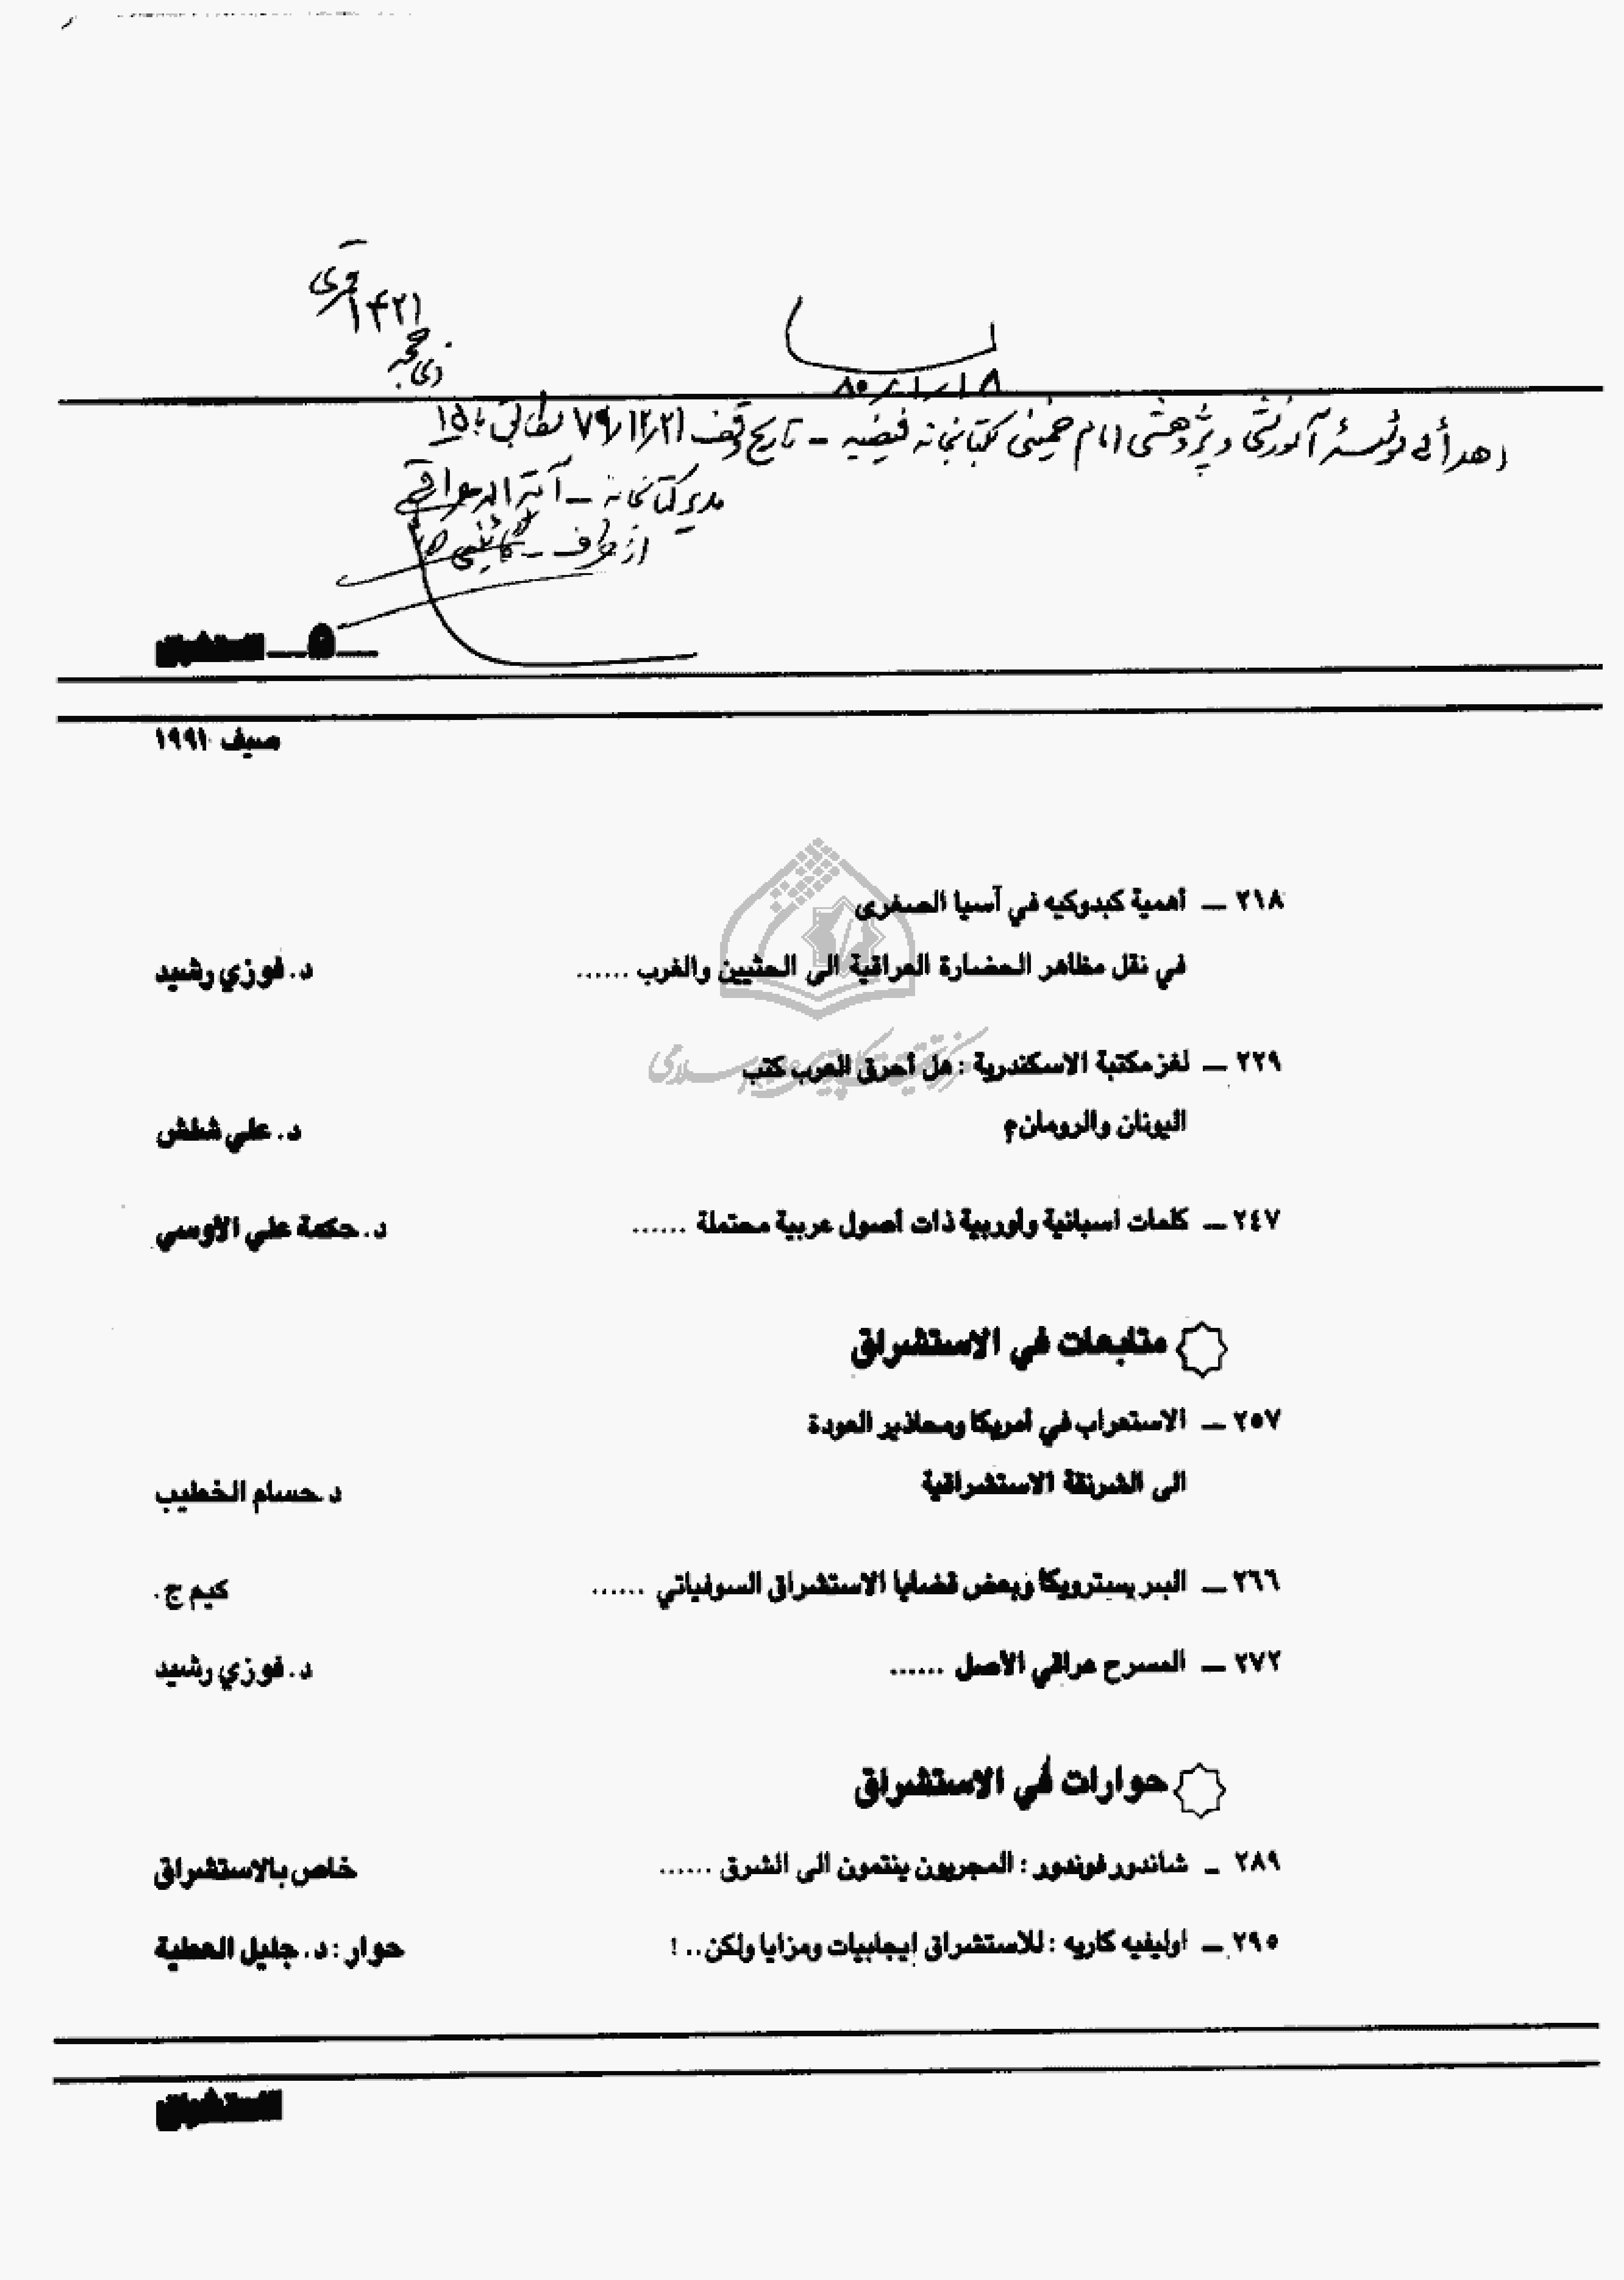 قمری
۱۴۲۱
ذی حجه
۸۰/۱/۱۸
اهدائی مؤسسهٔ آموزشی و پژوهشی امام خمینی کتابخانه فیضیه - تاریخ وقف ۷۹/۱۲/۲۱ مطابق با ۱۵
مدیر کتابخانه - آیة الله عراقی
از طرف -
الاستشراق — ٥ —
صيف ١٩٩١
٢١٨ — أهمية كبدوكيه في آسيا الصغرى
في نقل مظاهر الحضارة العراقية الى الحثيين والغرب ...... د. فوزي رشيد
٢٢٩ — لغز مكتبة الاسكندرية : هل أحرق العرب كتب
اليونان والرومان؟ د. علي شلش
٢٤٧ — كلمات اسبانية وأوربية ذات أصول عربية محتملة ...... د. حكمة علي الأوسي
متابعات في الاستشراق
٢٥٧ — الاستعراب في أمريكا ومحاذير العودة
الى الشرنقة الاستشراقية د. حسام الخطيب
٢٦٦ — البيريسترويكا وبعض قضايا الاستشراق السوفياتي ...... كيم ج.
٢٧٢ — المسرح عراقي الأصل ...... د. فوزي رشيد
حوارات في الاستشراق
٢٨٩ - شاندور فوندور : المجريون ينتمون الى الشرق ...... خاص بالاستشراق
٢٩٥ — اوليفيه كاريه : للاستشراق ايجابيات ومزايا ولكن.. ! حوار : د. جليل العطية
الاستشراق